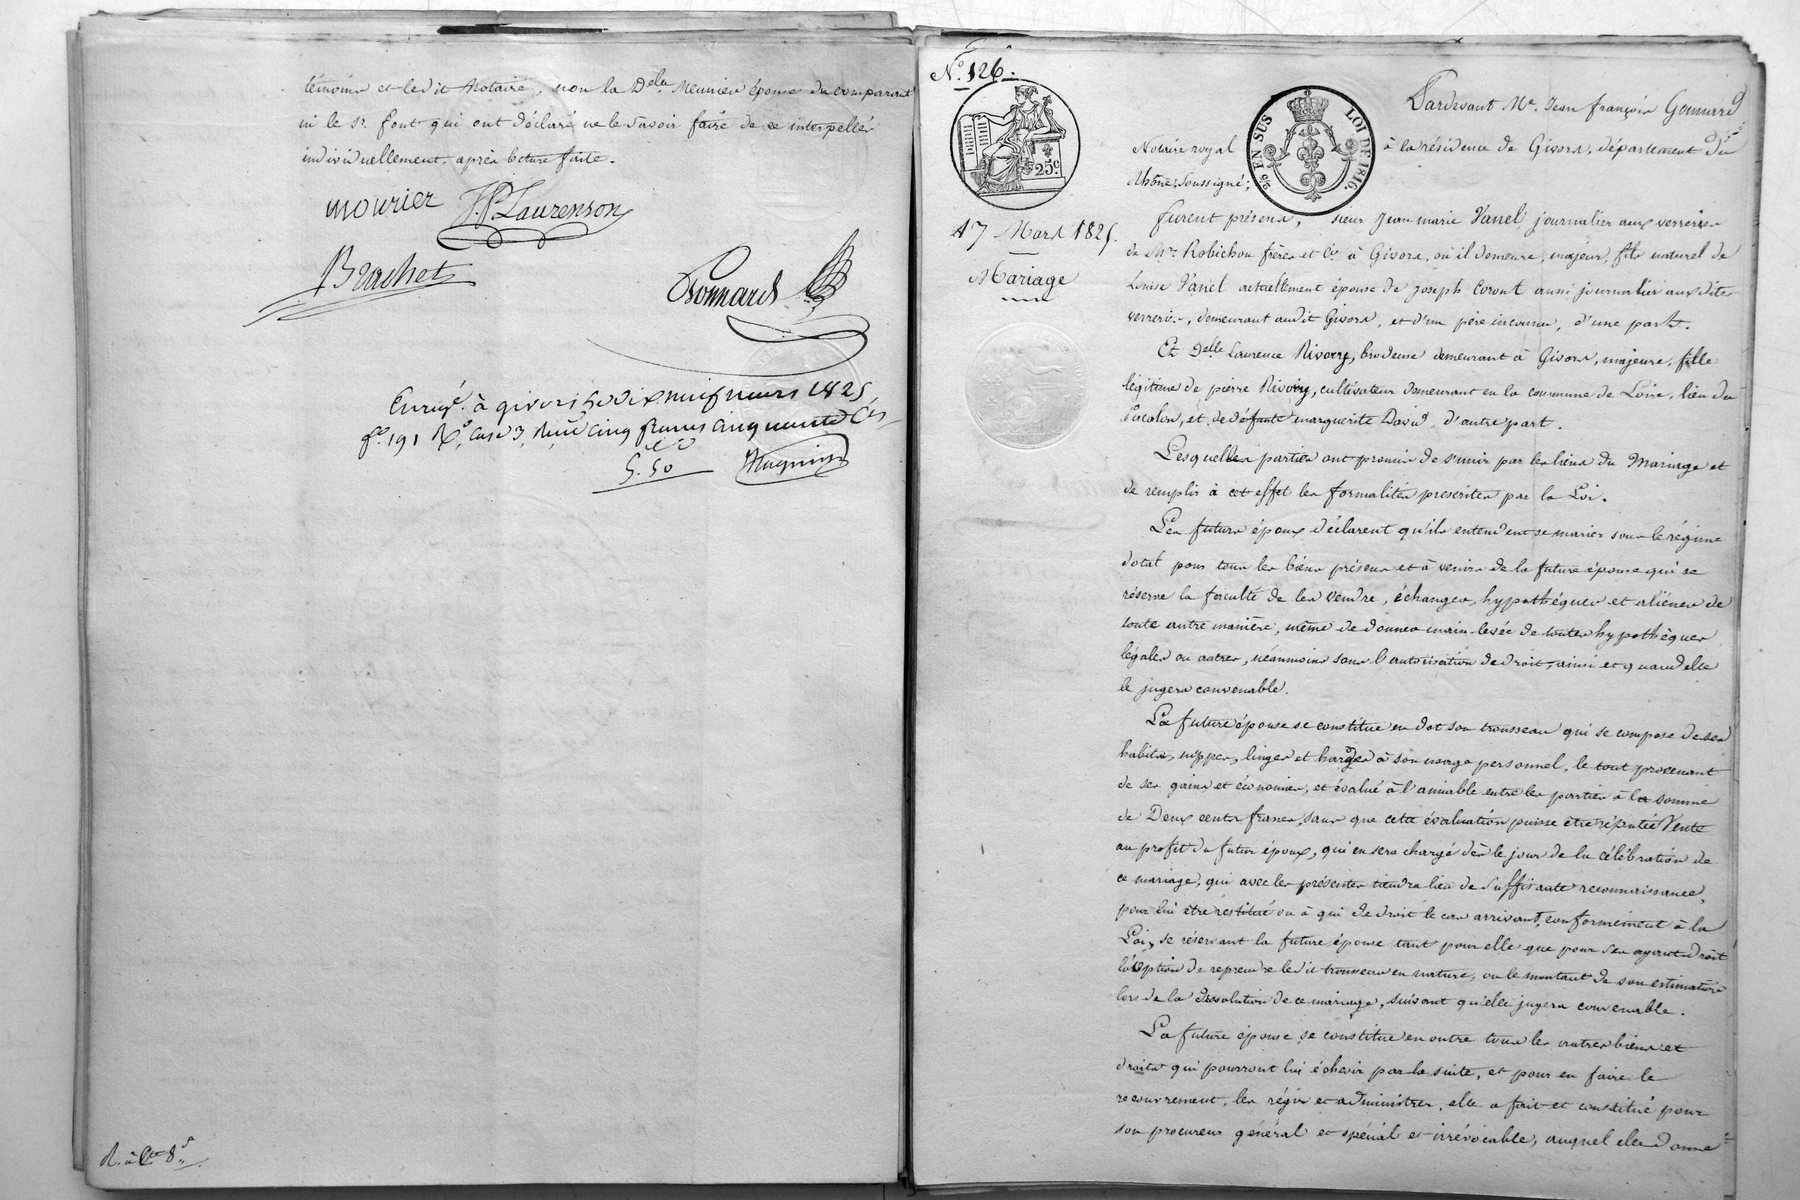 témoins et ledit Notaire, non la Delle Meunier épouse du comparant
ni le Sr. Font qui ont déclaré ne le savoir faire de ce interpellés
individuellement, après lecture faite.
mourier J.P. Laurenson
Brachet
Gonnard
Enregé. à givors le dix neuf mars 1825,
fo. 191 Ro. case 3, Reçu cinq francs cinquante Ces
5.50
R. à Lo. 8 d.
No. 126.
25c.
2/5 EN SUS LOI DE 1816.
17 Mars 1825.
Mariage
Pardevant Me. Jean françois Gonnard
Notaire royal à la résidence de Givors, département du
Rhône, soussigné;
furent présens, sieur Jean marie Vanel, journalier aux verreries
de Mrs. Robichon frères et Cie. à Givors, où il demeure, majeur, fils naturel de
Louise Vanel actuellement épouse de joseph Coront aussi journalier aux dites
verreries, demeurant audit Givors, et d'un père inconnu, d'une part.
Et Delle Laurence Rivory, brodeuse demeurant à Givors, majeure, fille
légitime de pierre Rivory, cultivateur demeurant en la commune de Loire, lieu du
Pacalon, et de défunte marguerite David, d'autre part.
Lesquelles parties ont promis de s'unir par les liens du Mariage et
de remplir à cet effet les formalités prescrites par la Loi.
Les futurs époux déclarent qu'ils entendent se marier sous le régime
dotal pour tous les biens présens et à venir de la future épouse qui se
réserve la faculté de les vendre, échanger, hypothéquer et aliéner de
toute autre manière, même de donner main-levée de toutes hypothèques
légales ou autres, néanmoins sous l'autorisation de droit, ainsi et quand elle
le jugera convenable.
La future épouse se constitue en dot son trousseau qui se compose de ses
habits, nippes, linges et hardes à son usage personnel, le tout provenant
de ses gains et économies, et évalué à l'amiable entre les parties à la somme
de Deux cents francs, sans que cette évaluation puisse être réputée Vente
au profit du futur époux, qui en sera chargé dès le jour de la célébration de
ce mariage, qui avec les présentes tiendra lieu de suffisante reconnaissance,
pour lui être restitué ou à qui de droit le cas arrivant, conformément à la
Loi, se réservant la future épouse tant pour elle que pour ses ayants droit
l'option de reprendre ledit trousseau en nature, ou le montant de son estimation
lors de la dissolution de ce mariage, suivant qu'elle jugera convenable.
La future épouse se constitue en outre tous les autres biens et
droits qui pourront lui échoir par la suite, et pour en faire le
recouvrement, les régir et administrer, elle a fait et constitué pour
son procureur général et spécial et irrévocable, auquel elle donne